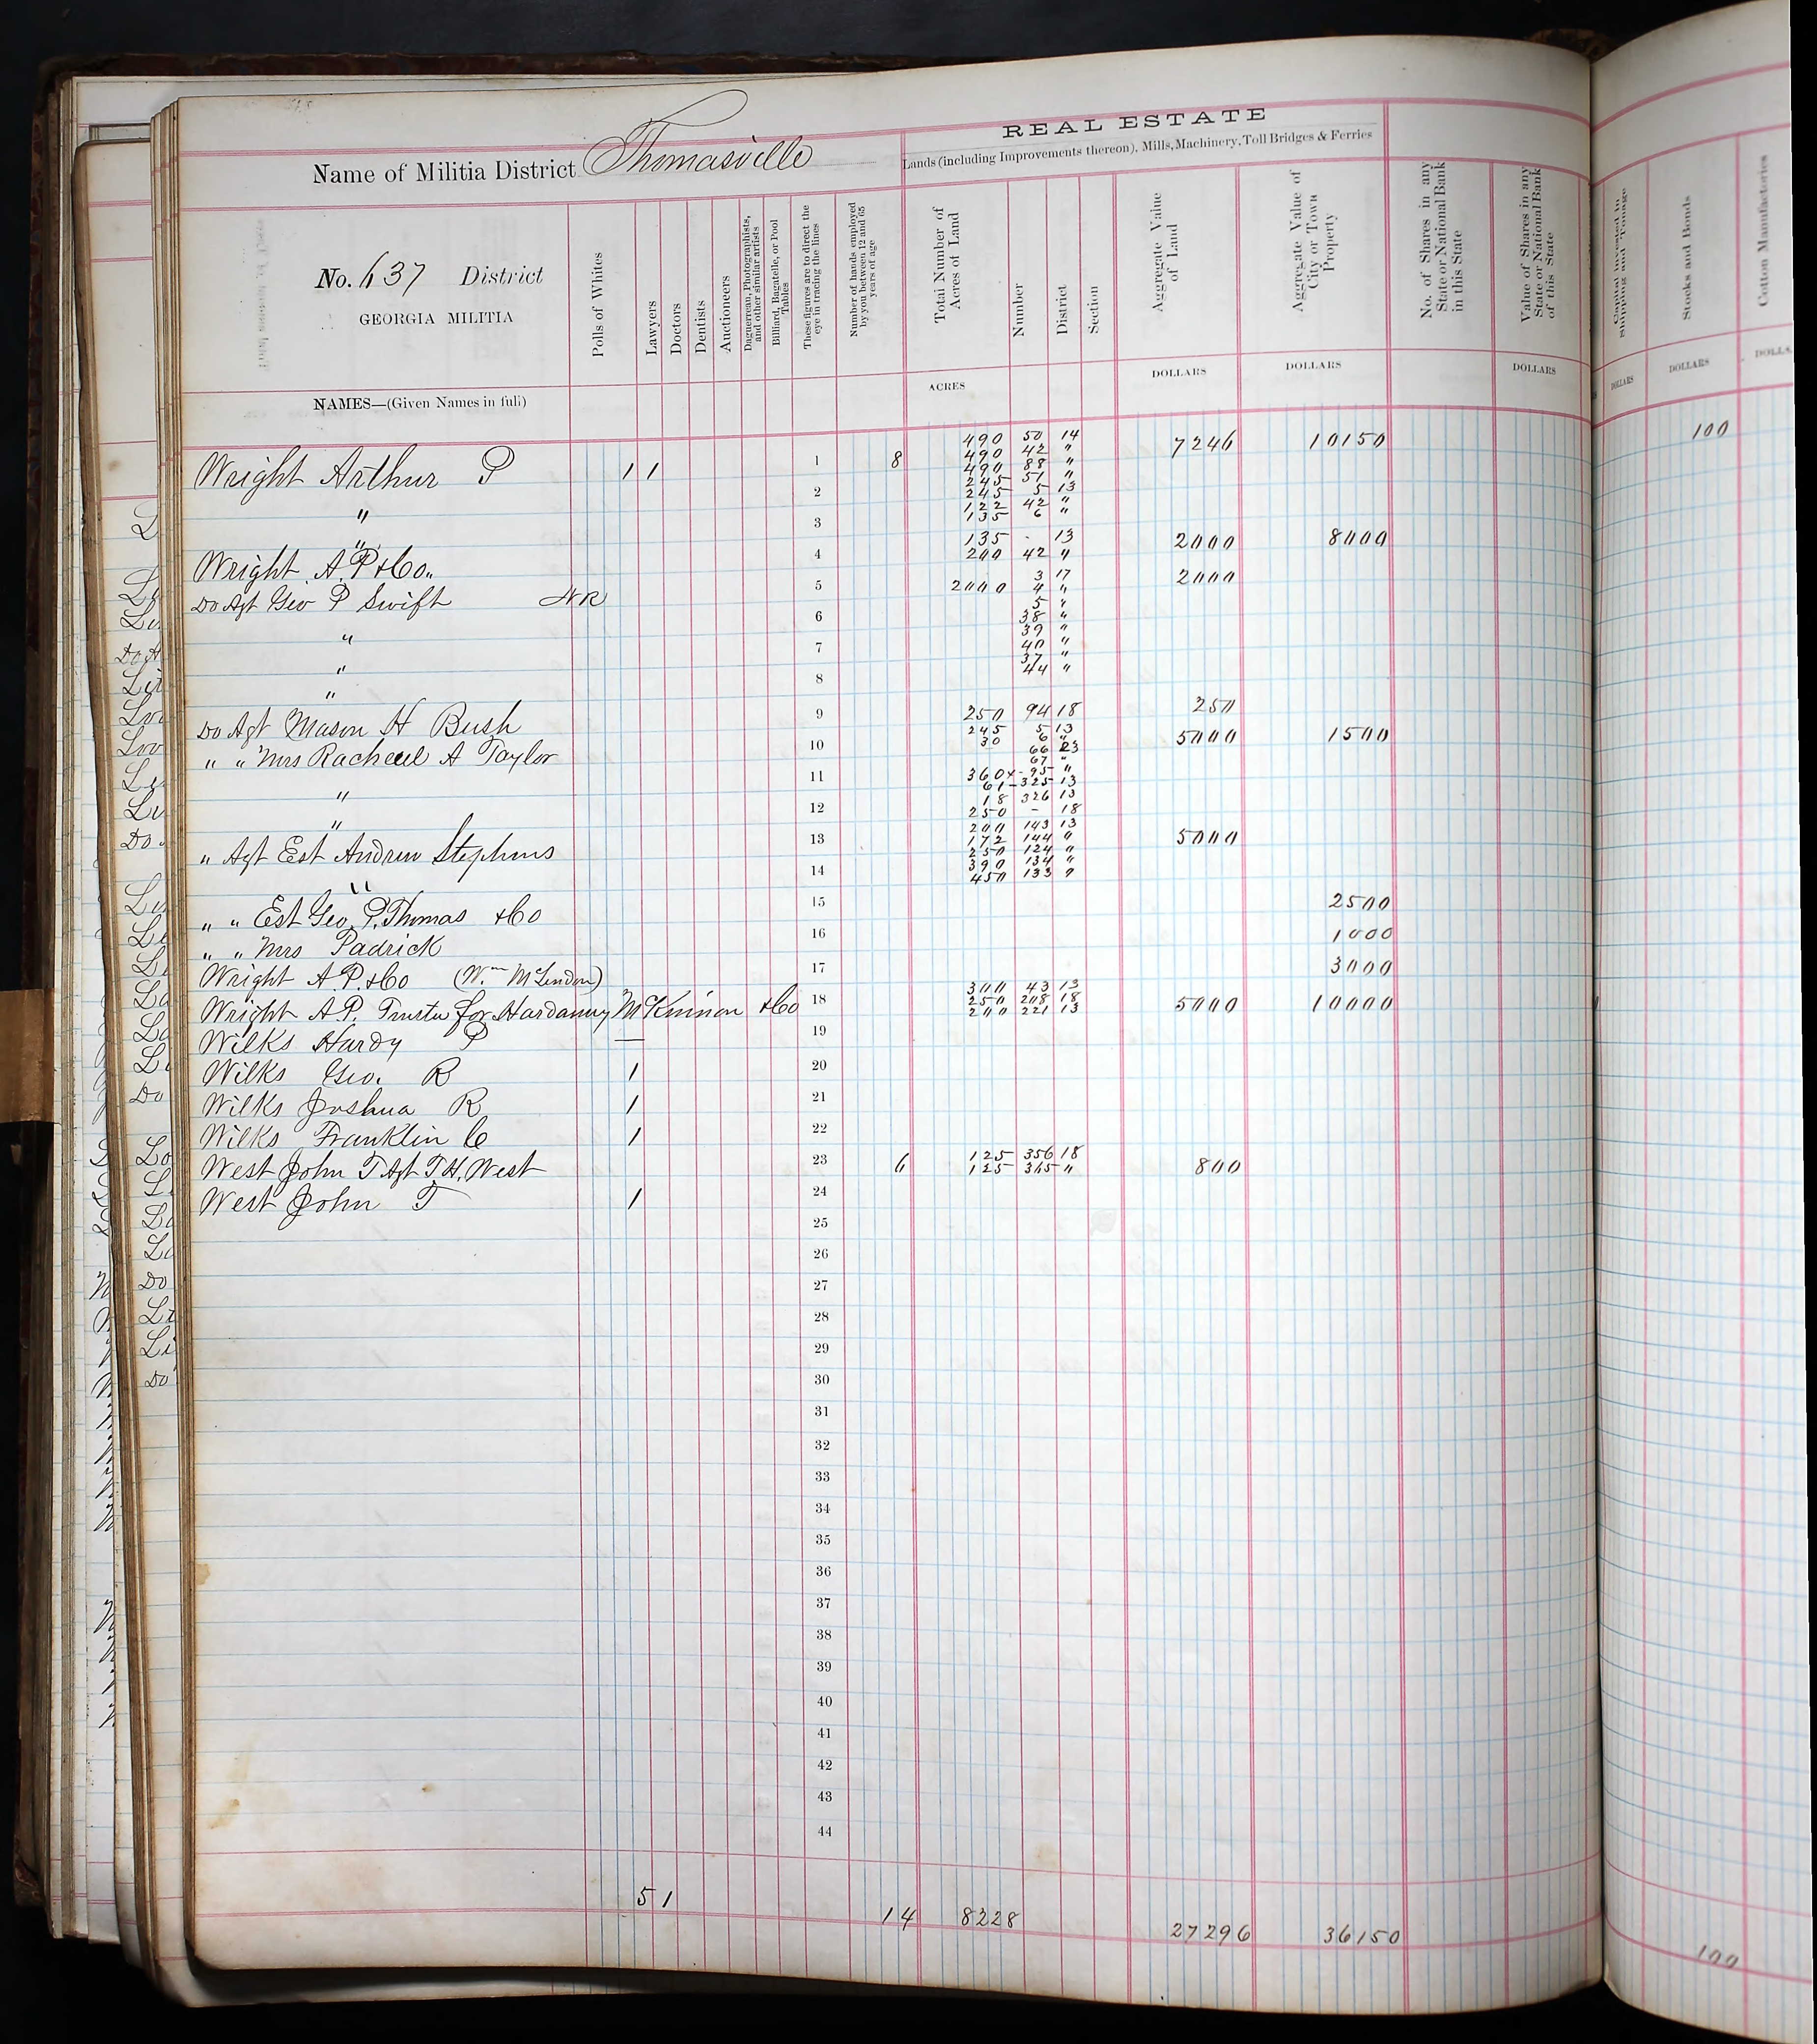 REAL ESTATE
Name of Militia District Thomasville
Lands (including Improvements thereon), Mills, Machinery, Toll Bridges & Ferries
No. 637 District
GEORGIA MILITIA
NAMES—(Given Names in full)
Polls of Whites
Lawyers
Doctors
Dentists
Auctioneers
Daguerrean, Photographists, and other similar artists
Billiard, Bagatelle, or Pool Tables
These figures are to direct the eye in tracing the lines
Number of hands employed by you between 12 and 65 years of age
Total Number of Acres of Land
ACRES
Number
District
Section
Aggregate Value of Land
DOLLARS
Aggregate Value of City or Town Property
DOLLARS
No. of Shares in any State or National Bank in this State
Value of Shares in any State or National Bank of this State
DOLLARS
Capital Invested in Shipping and Tonage
DOLLARS
Stocks and Bonds
DOLLARS
Cotton Manufactories
DOLLS.
490 50 14 7246 10150 100
Wright Arthur P 1 1 1 8 490 42 "
490 88 "
245 51 "
2 245 5 13
" 122 42 "
3 135 6 "
" 135 - 13 2000 8000
Wright A. P. & Co. " 4 200 42 "
3 17 2000
Do Agt Geo P Swift NR 5 2000 4 "
5 "
6 38 "
" 39 "
7 40 "
" 37 "
8 44 "
"
Do Agt Mason H Bush 9 250 94 18 250
245 5 13
" " Mrs Racheal A Taylor 10 30 6 " 5000 1500
66 23
67 "
11 360 x - 95 "
" 61 - 325 13
18 326 13
" 12 250 - 18
200 143 13
" Agt Est Andrew Stephens 13 172 144 " 5000
250 124 "
390 134 "
" 14 450 133 "
" " Est Geo. P. Thomas & Co 15 2500
" " Mrs Padrick 16 1000
Wright A. P. & Co (Wm McLendon) 17 3000
300 43 13
Wright A P. Trustee for Hardaway McKinnon & Co 18 250 208 18 5000 10000
200 221 13
Wilks Hardy P — 19
Wilks Geo. R 1 20
Wilks Joshua R 1 21
Wilks Franklin C 1 22
West John T Agt T. H. West 23 6 125 356 18 800
125 365 "
West John T 1 24
25
26
27
28
29
30
31
32
33
34
35
36
37
38
39
40
41
42
43
44
5 1 14 8228 27296 36150 100